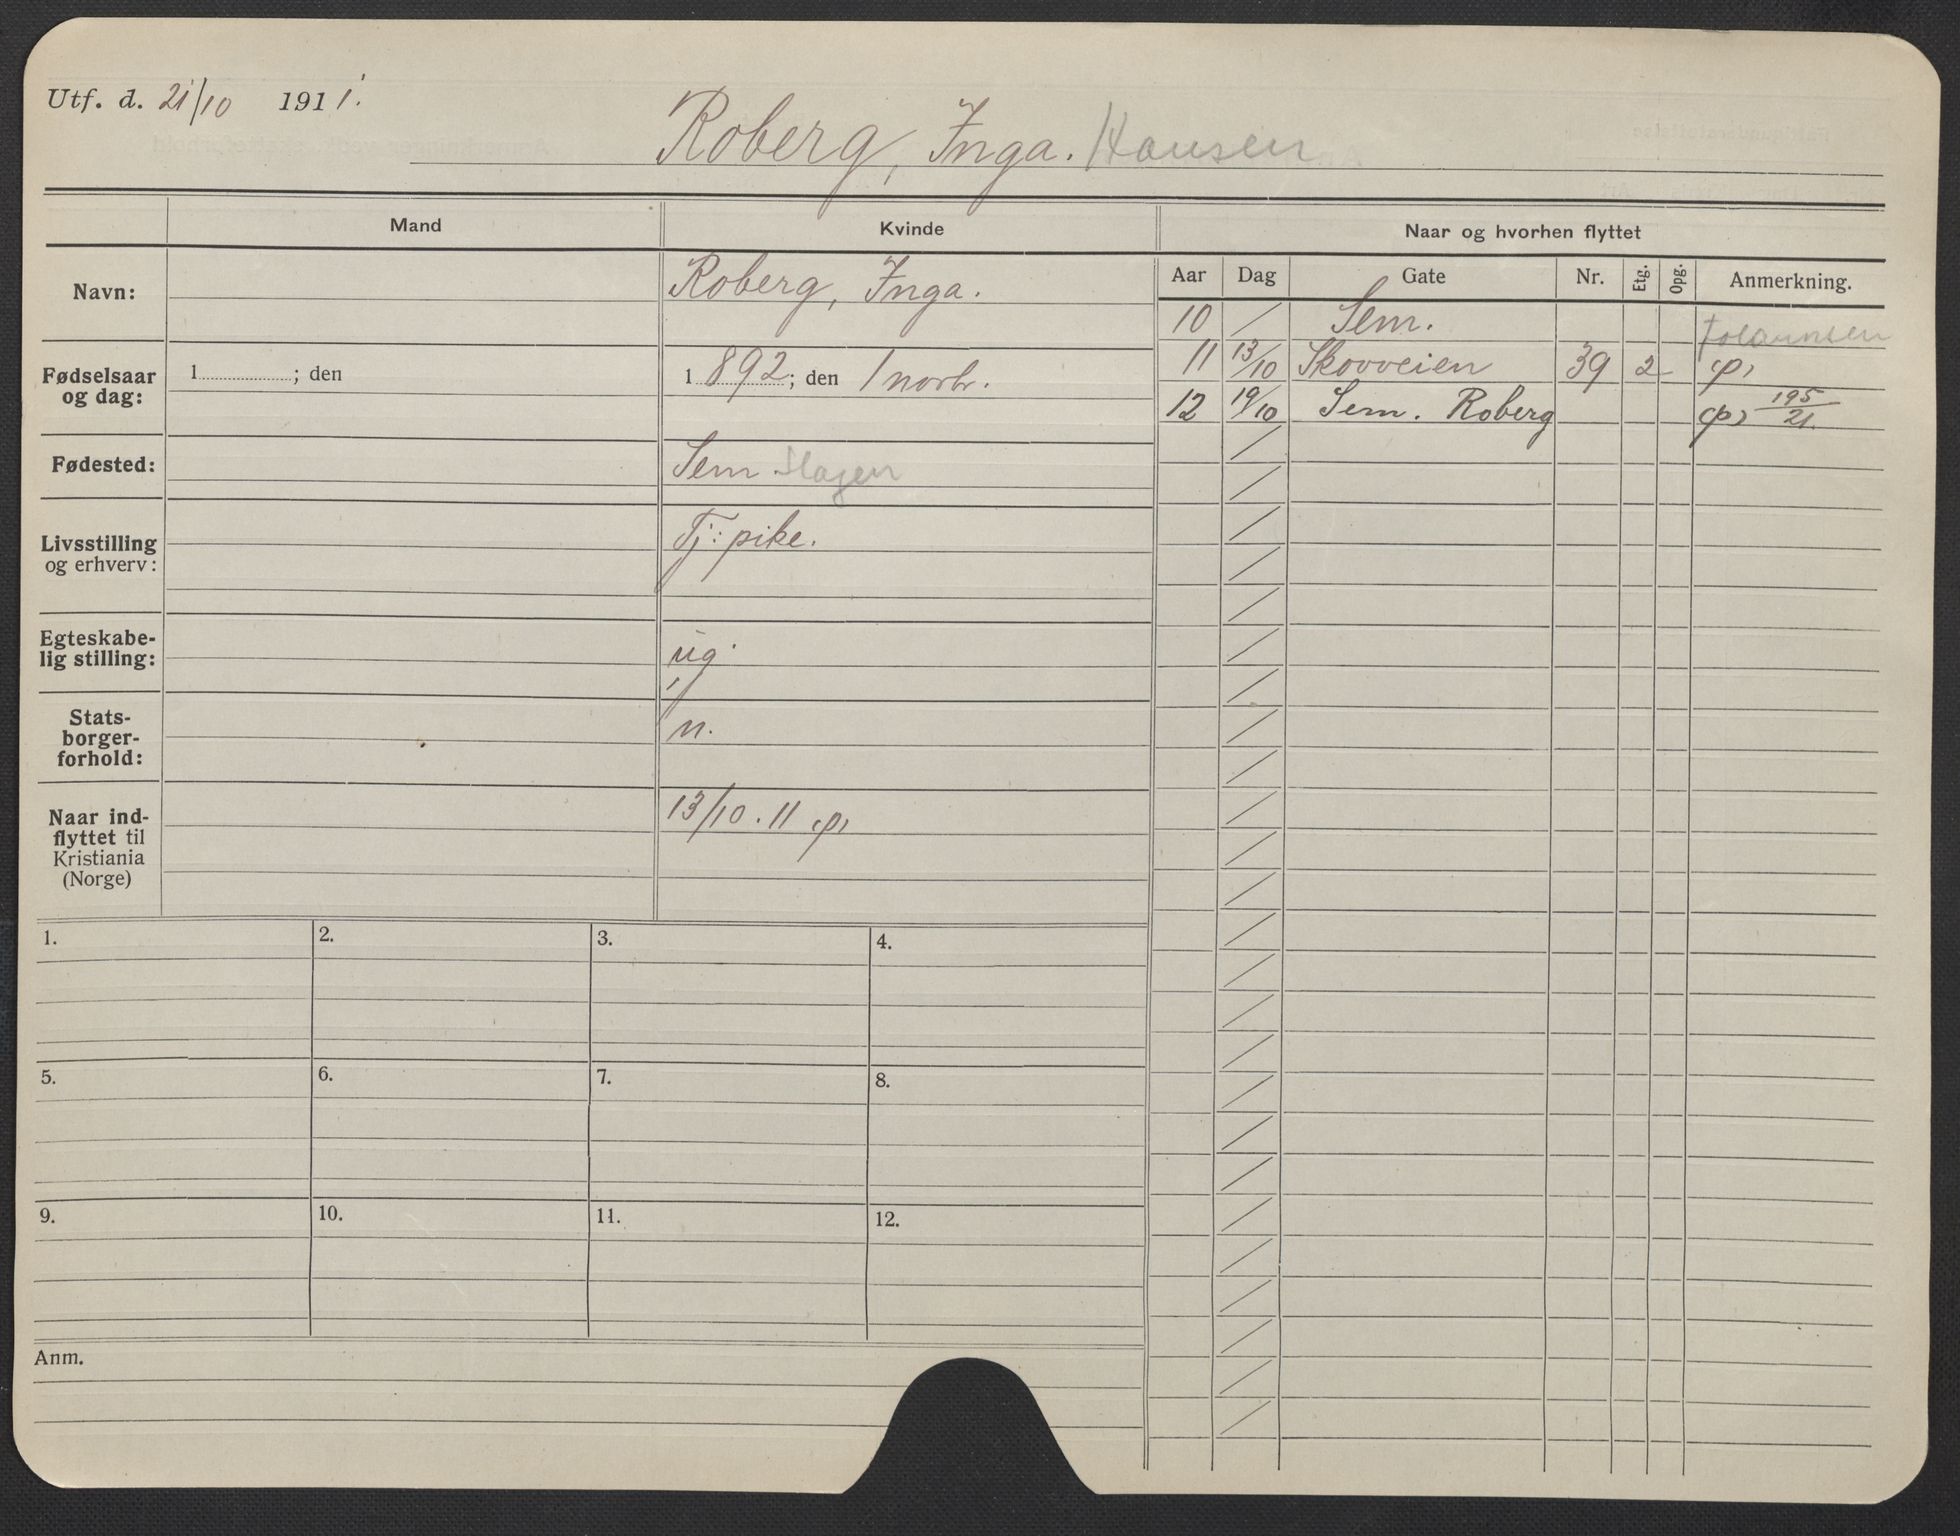 Utf. d. 21/10 1911.
Roberg, Inga. Hansen
Mand
Kvinde
Navn:
Roberg, Inga.
Fødselsaar og dag:
1 ; den
1 892 ; den 1 novbr.
Fødested:
Sem Slagen
Livsstilling og erhverv:
Tj: pike.
Egteskabe-
lig stilling:
ug.
Stats-
borger-
forhold:
n.
Naar ind-
flyttet til
Kristiania
(Norge)
13/10.11 p,
Naar og hvorhen flyttet
Aar Dag Gate Nr. Etg. Opg. Anmerkning.
10 / Sem.
11 13/10 Skovveien 39 2 p,
12 19/10 Sem. Roberg p) 195/21.
1. 2. 3. 4.
5. 6. 7. 8.
9. 10. 11. 12.
Anm.